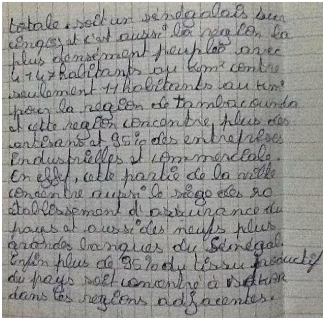 totale, soit un sénégalais sur
cinq, et c'est aussi la région la
plus densément peuplée avec
4147 habitants au km² contre
seulement 11 habitants au km²
pour la région de tambacounda
et cette région concentre plus des
et 95% des entreprises
industrielles et commerciale.
En effet, cette partie de la ville
concentre aussi le siège des 20
établissement d'assurance du
pays et aussi des neufs plus
grandes banques du Sénégal.
Enfin plus de 95% du tissu productif
du pays soit concentré à
dans les regions adjacentes.